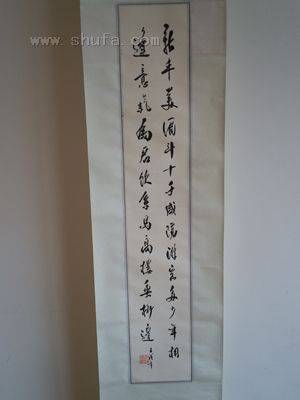 新丰美酒斗十千咸阳游侠多少年相
逢意气为君饮系马高楼垂柳边
www.shufa.com